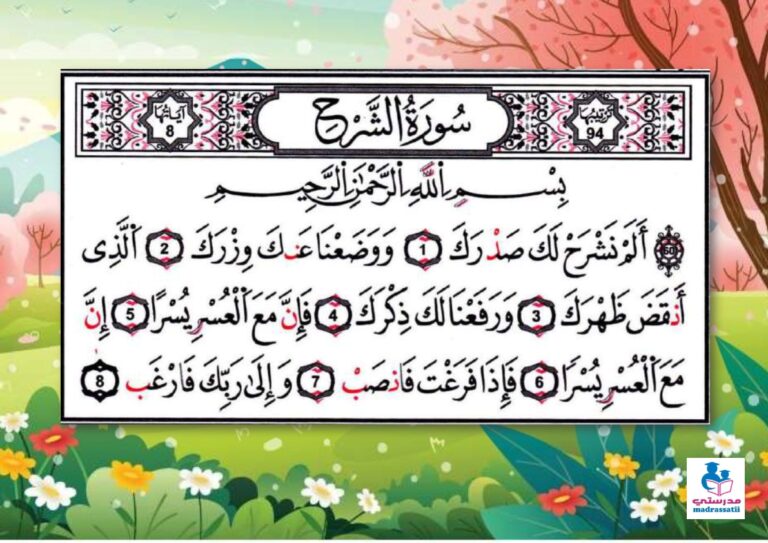 آيَاتُهَا 8
سُورَةُ الشَّرْحِ
تَرْتِيبُهَا 94
بِسْمِ اِللَّهِ اِلرَّحْمَٰنِ اِلرَّحِيمِ
60 أَلَمْ نَشْرَحْ لَكَ صَدْرَكَ 1 وَوَضَعْنَا عَنكَ وِزْرَكَ 2 اَلَّذِى
أَنقَضَ ظَهْرَكَ 3 وَرَفَعْنَا لَكَ ذِكْرَكَ 4 فَإِنَّ مَعَ اَلْعُسْرِ يُسْرًا 5 إِنَّ
مَعَ اَلْعُسْرِ يُسْرًا 6 فَإِذَا فَرَغْتَ فَانصَبْ 7 وَإِلَىٰ رَبِّكَ فَارْغَب 8
مدرستي
madrassatii